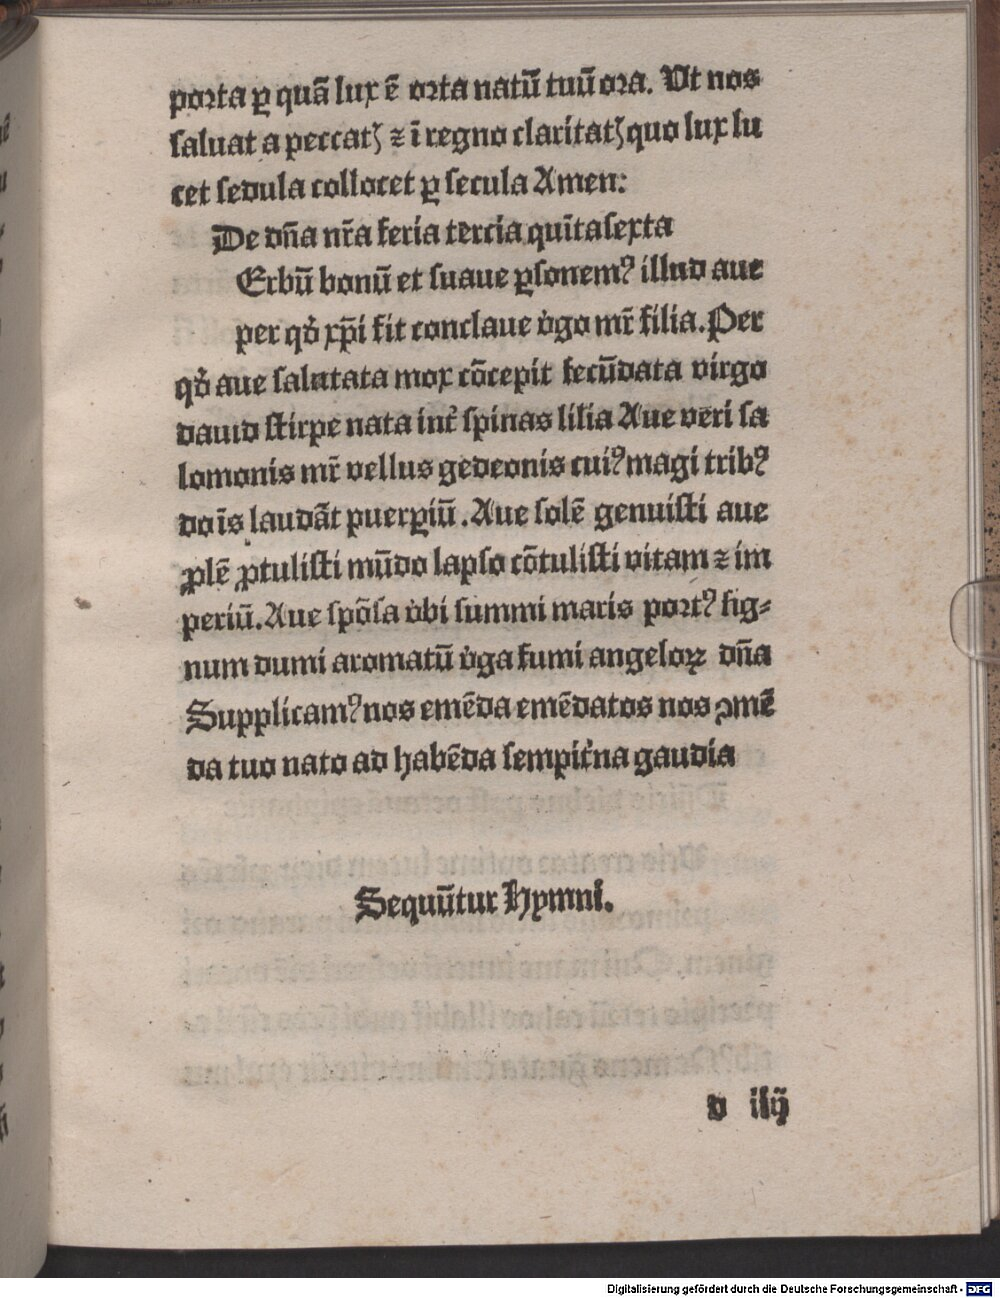 porta ꝑ quā lux ē orta natū tuū ora. Ut nos
saluat a peccatꝫ ⁊ ī regno claritatꝫ quo lux lu
cet sedula collocet ꝑ secula Amen:
De dn̄a nr̄a feria tercia quīta sexta
Erbū bonū et suaue ꝑsonemꝰ illud aue
per qď xp̄i fit conclaue v̓go mr̄ filia. Per
qď aue salutata mox cōcepit fecūdata virgo
dauid stirpe nata int̓ spinas lilia Aue veri sa
lomonis mr̄ vellus gedeonis cuiꝰ magi tribꝰ
doīs laudāt puerꝑiū. Aue solē genuisti aue
ꝓlē ꝓtulisti mūdo lapso cōtulisti vitam ⁊ im
periū. Aue spōsa v̓bi summi maris portꝰ sig⸗
num dumi aromatū v̓ga fumi angeloꝝ dn̄a
Supplicamꝰ nos emēda emēdatos nos ꝯmē
da tuo nato ad habēda sempit̓na gaudia
Sequūtur Hymni.
d iiij
Digitalisierung gefördert durch die Deutsche Forschungsgemeinschaft - DFG